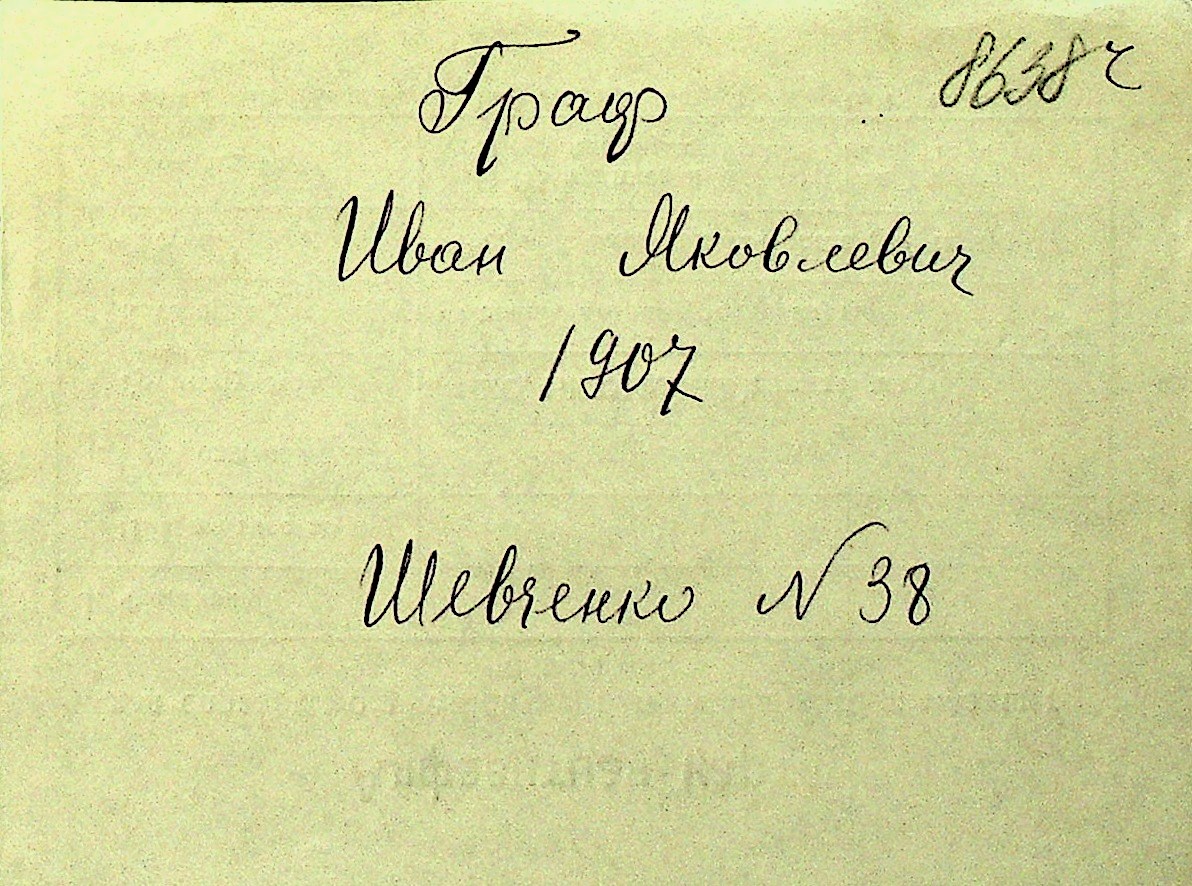 8638ч
Граф
Иван Яковлевич
1907
Шевченко N 38